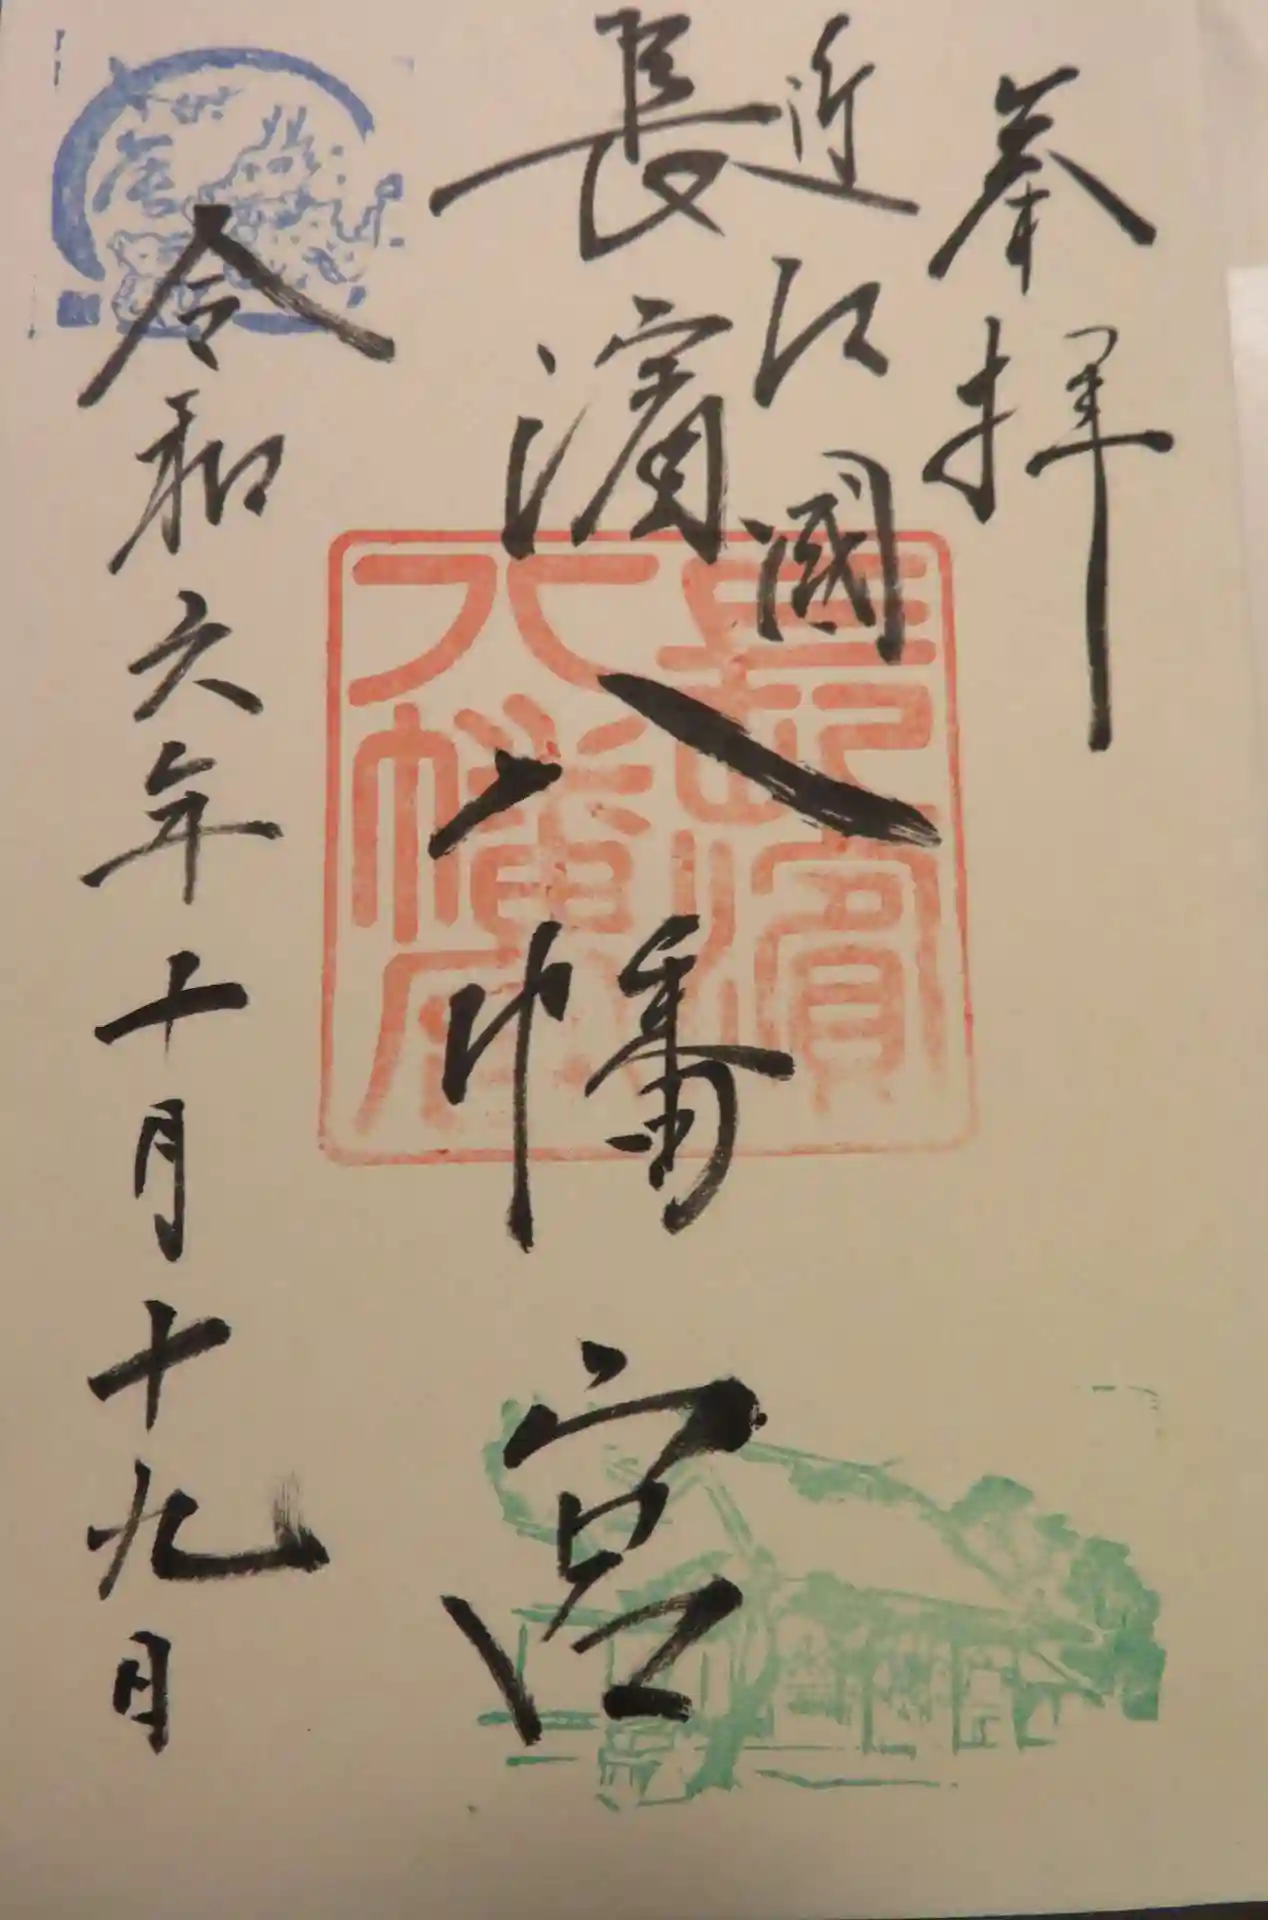 奉拝
近江國
長濱八幡宮
長濱八幡宮
令和六年十月十九日